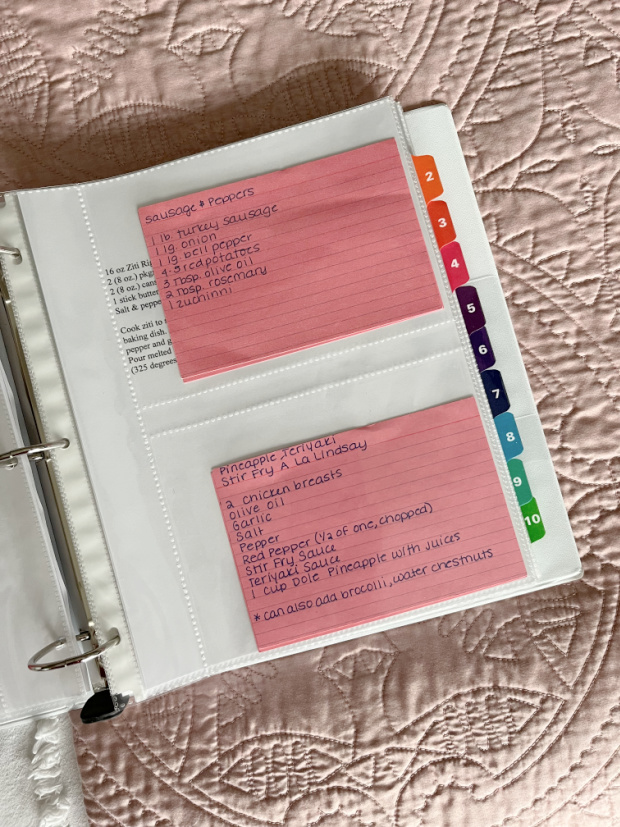 Sausage & Peppers
1 lb. turkey sausage
1 lg. onion
1 lg bell pepper
4-5 red potatoes
3 Tbsp. olive oil
2 Tbsp. rosemary
1 zuchinni
16 oz Ziti
2 (8 oz.) pkg
2 (8 oz.)
1 stick butter
Salt & peppe
Cook ziti to
baking dish.
pepper and
Pour melted
(325 degrees
Pineapple Teriyaki
Stir Fry A La Lindsay
2 chicken breasts
Olive oil
Garlic
Salt
Pepper
Red Pepper (1/2 of one, chopped)
Stir Fry Sauce
Teriyaki Sauce
1 cup Dole Pineapple with Juices
* can also add brocolli, water chestnuts
2
3
4
5
6
7
8
9
10